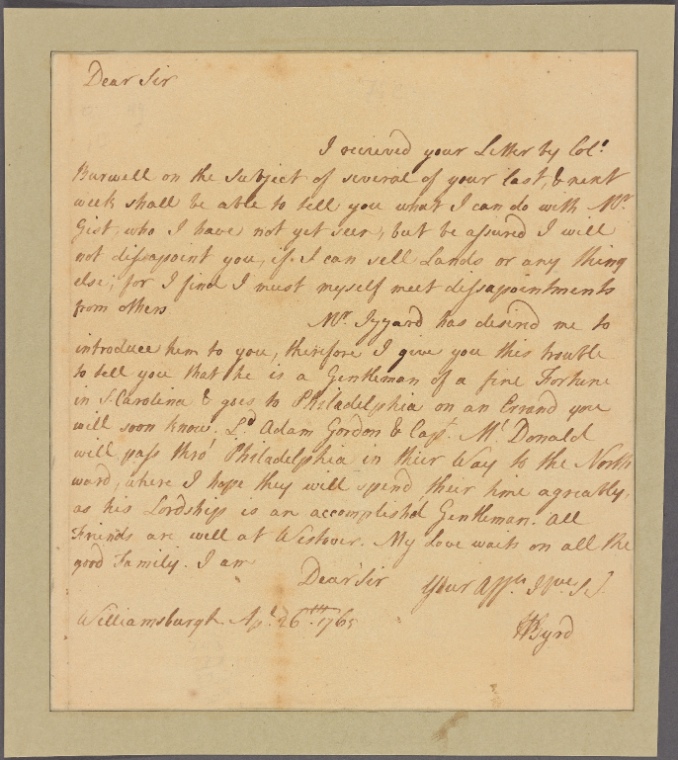 Dear Sir
I recieved your Letter by Col.
Burwell on the subject of several of your last, & next
week shall be able to tell you what I can do with Mr.
Gist, who I have not yet seen, but be assured I will
not dissapoint you, if I can sell Lands or any thing
else; for I find I must myself meet dissapointments
from others
Mr. Izzard has desired me to
introduce him to you, therefore I give you this trouble
to tell you that he is a Gentleman of a fine Fortune
in S. Carolina & goes to Philadelphia on an Errand you
will soon know. Ld. Adam Gordon & Capt. Mc. Donald
will pass thro' Philadelphia in thier Way to the North
ward, where I hope they will spend their time agreably,
as his Lordship is an accomplish'd Gentleman. All
Friends are well at Westover. My Love waits on all the
good Family. I am
Dear Sir Your
Williamsburgh Apl. 26th. 1765
WByrd